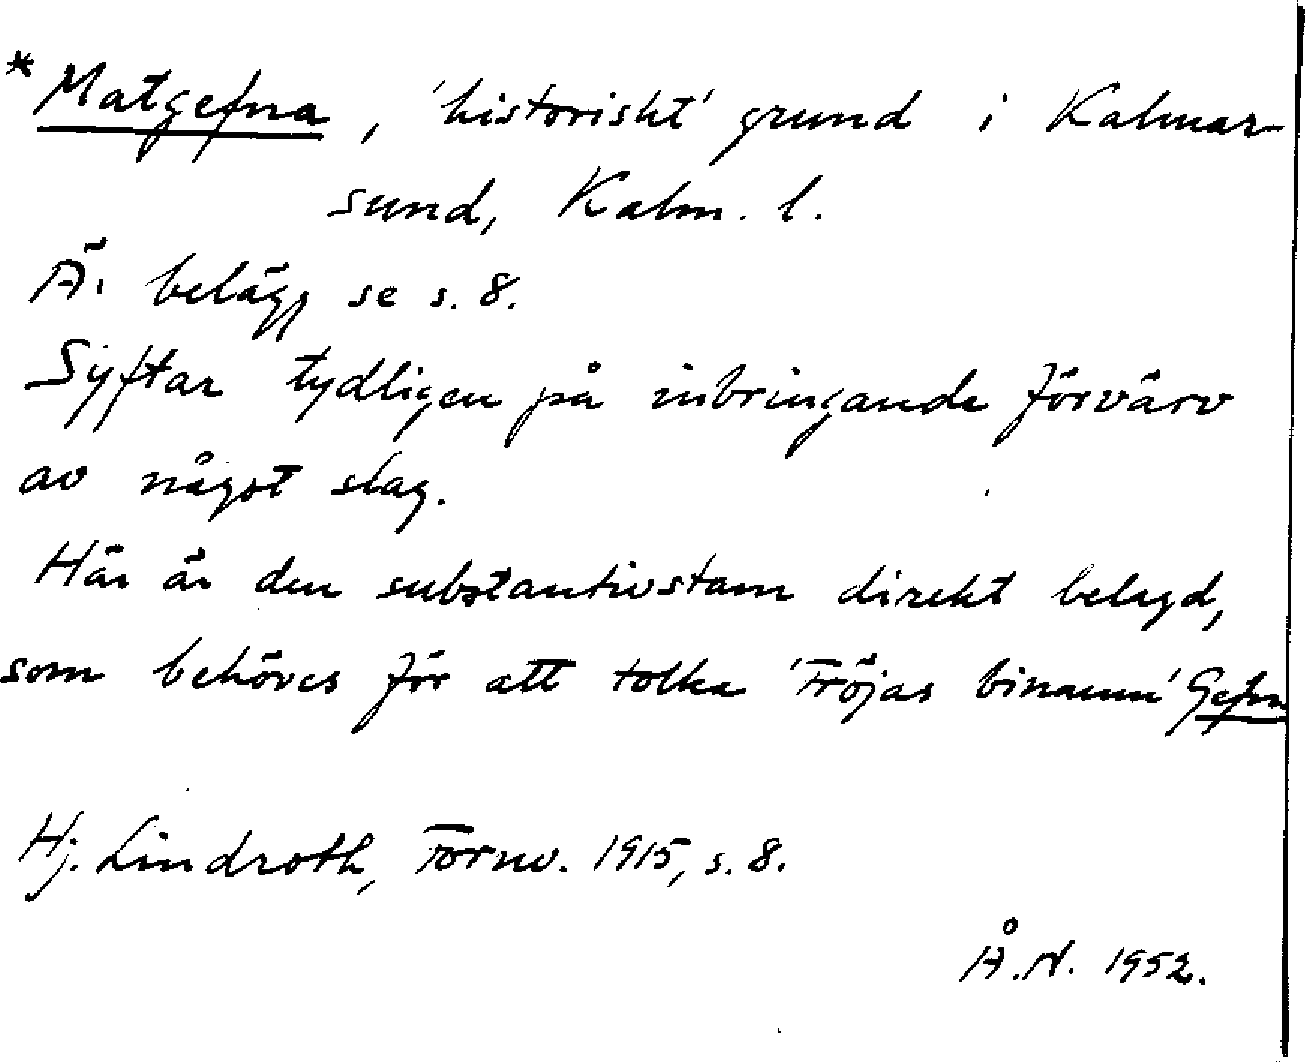 *Matgefna, 'historiskt' grund i Kalmar-
sund, Kalm. l.
Ä. belägg se s. 8.
Syftar tydligen på inbringande förvärv
av något slag.
Här är den substantivstam direkt belagd,
som behöves för att tolka 'Fröjas binamn' Gefn
Hj. Lindroth, Fornv. 1915, s. 8.
Å.N. 1952.